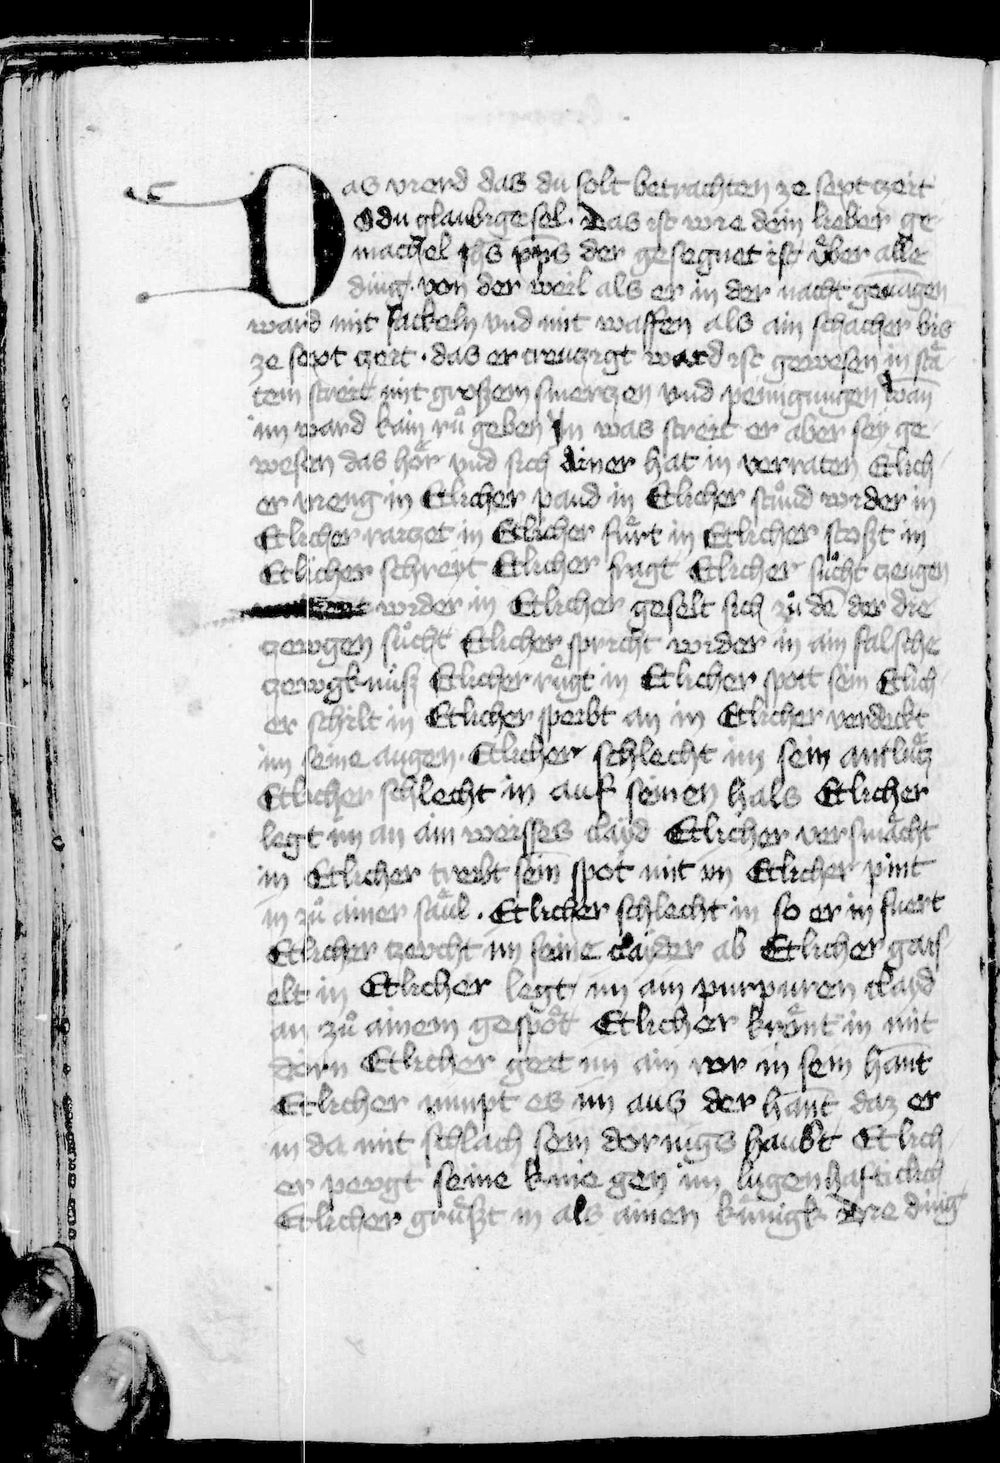 Das vierd das du solt betrachten ze sext zeit
O du glaubige sel. Das ist wie dein lieber ge-
machel ihs xps der gesegnet ist über alle
ding. von der weil als er in der nacht gevangen
ward mit fackeln vnd mit waffen als ain schacher bis
ze sext zeit. das er creuczigt ward ist gewesen in stä-
tem streit mit großem smerczen vnd peinigungen wan
im ward kain rů geben In was streit er aber sey ge-
wesen das hör vnd sich Ainer hat in verraten Etlich-
er vieng in Etlicher pand in Etlicher stůnd wider in
Etlicher raiczet in Etlicher fůrt in Etlicher stoszt in
Etlicher schreyt Etlicher fragt Etlicher sůcht czeugen
wider in Etlicher geselt sich zů de der die
czewgen sůcht Etlicher spricht wider in ain falsche
czewgknůsz Etlicher rügt in Etlicher spott sein Etlich-
er schilt in Etlicher speibt an in Etlicher verdeckt
im seine augen. Etlicher schlecht im sein antlücz
Etlicher schlecht in auf seinen hals Etlicher
legt im an ain weisses clayd Etlicher versmächt
in Etlicher treibt sein spot mit im Etlicher pint
in zů ainer säul. Etlicher schlecht in so er in fuert
Etlicher czeucht im seine claider ab Etlicher gais-
elt in Etlicher legt im ain purpuren clayd
an zů ainem gespött Etlicher krönt in mit
dorn Etlicher geit im ain ror in sein hant
Etlicher nimpt es im aus der hant daz er
in da mit schlach sein dornigs haubt Etlich-
er peugt seine knie gen im lugenhafticlich
Etlicher grüszt in als ainen künigk Die ding